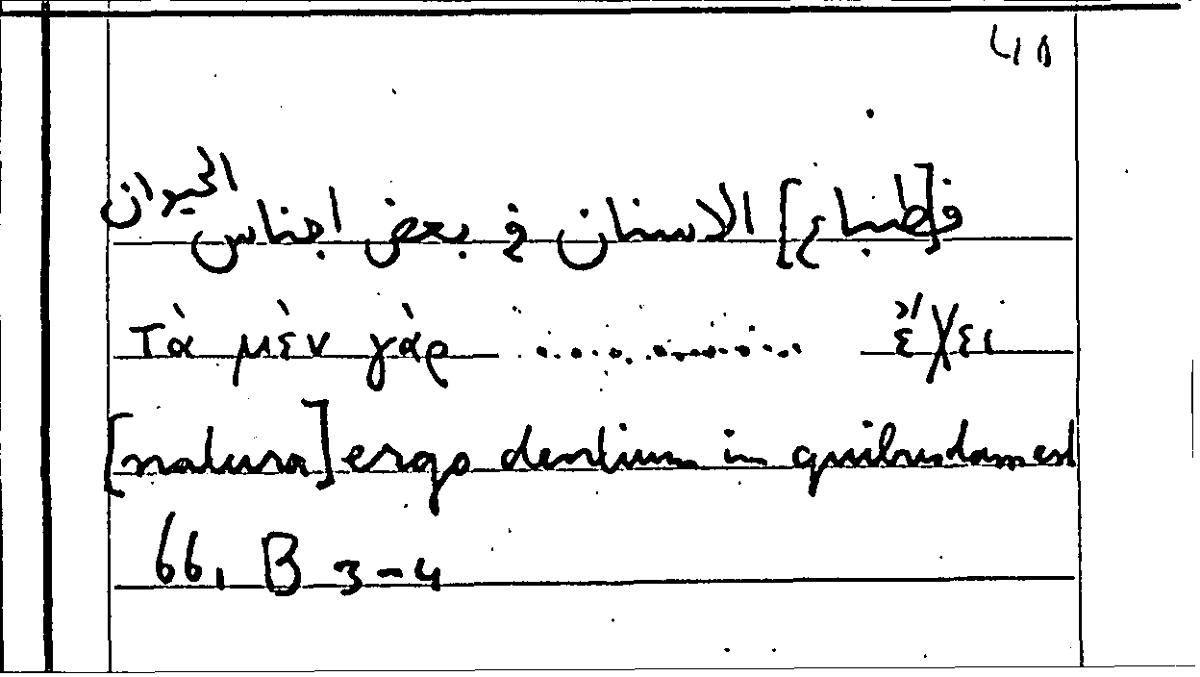 ف[طباع] الاسنان في بعض اجناس الحيوان
τὰ μὲν γὰρ ............ ἔχει
[natura] ergo dentium in quibusdam est
66, B 3-4